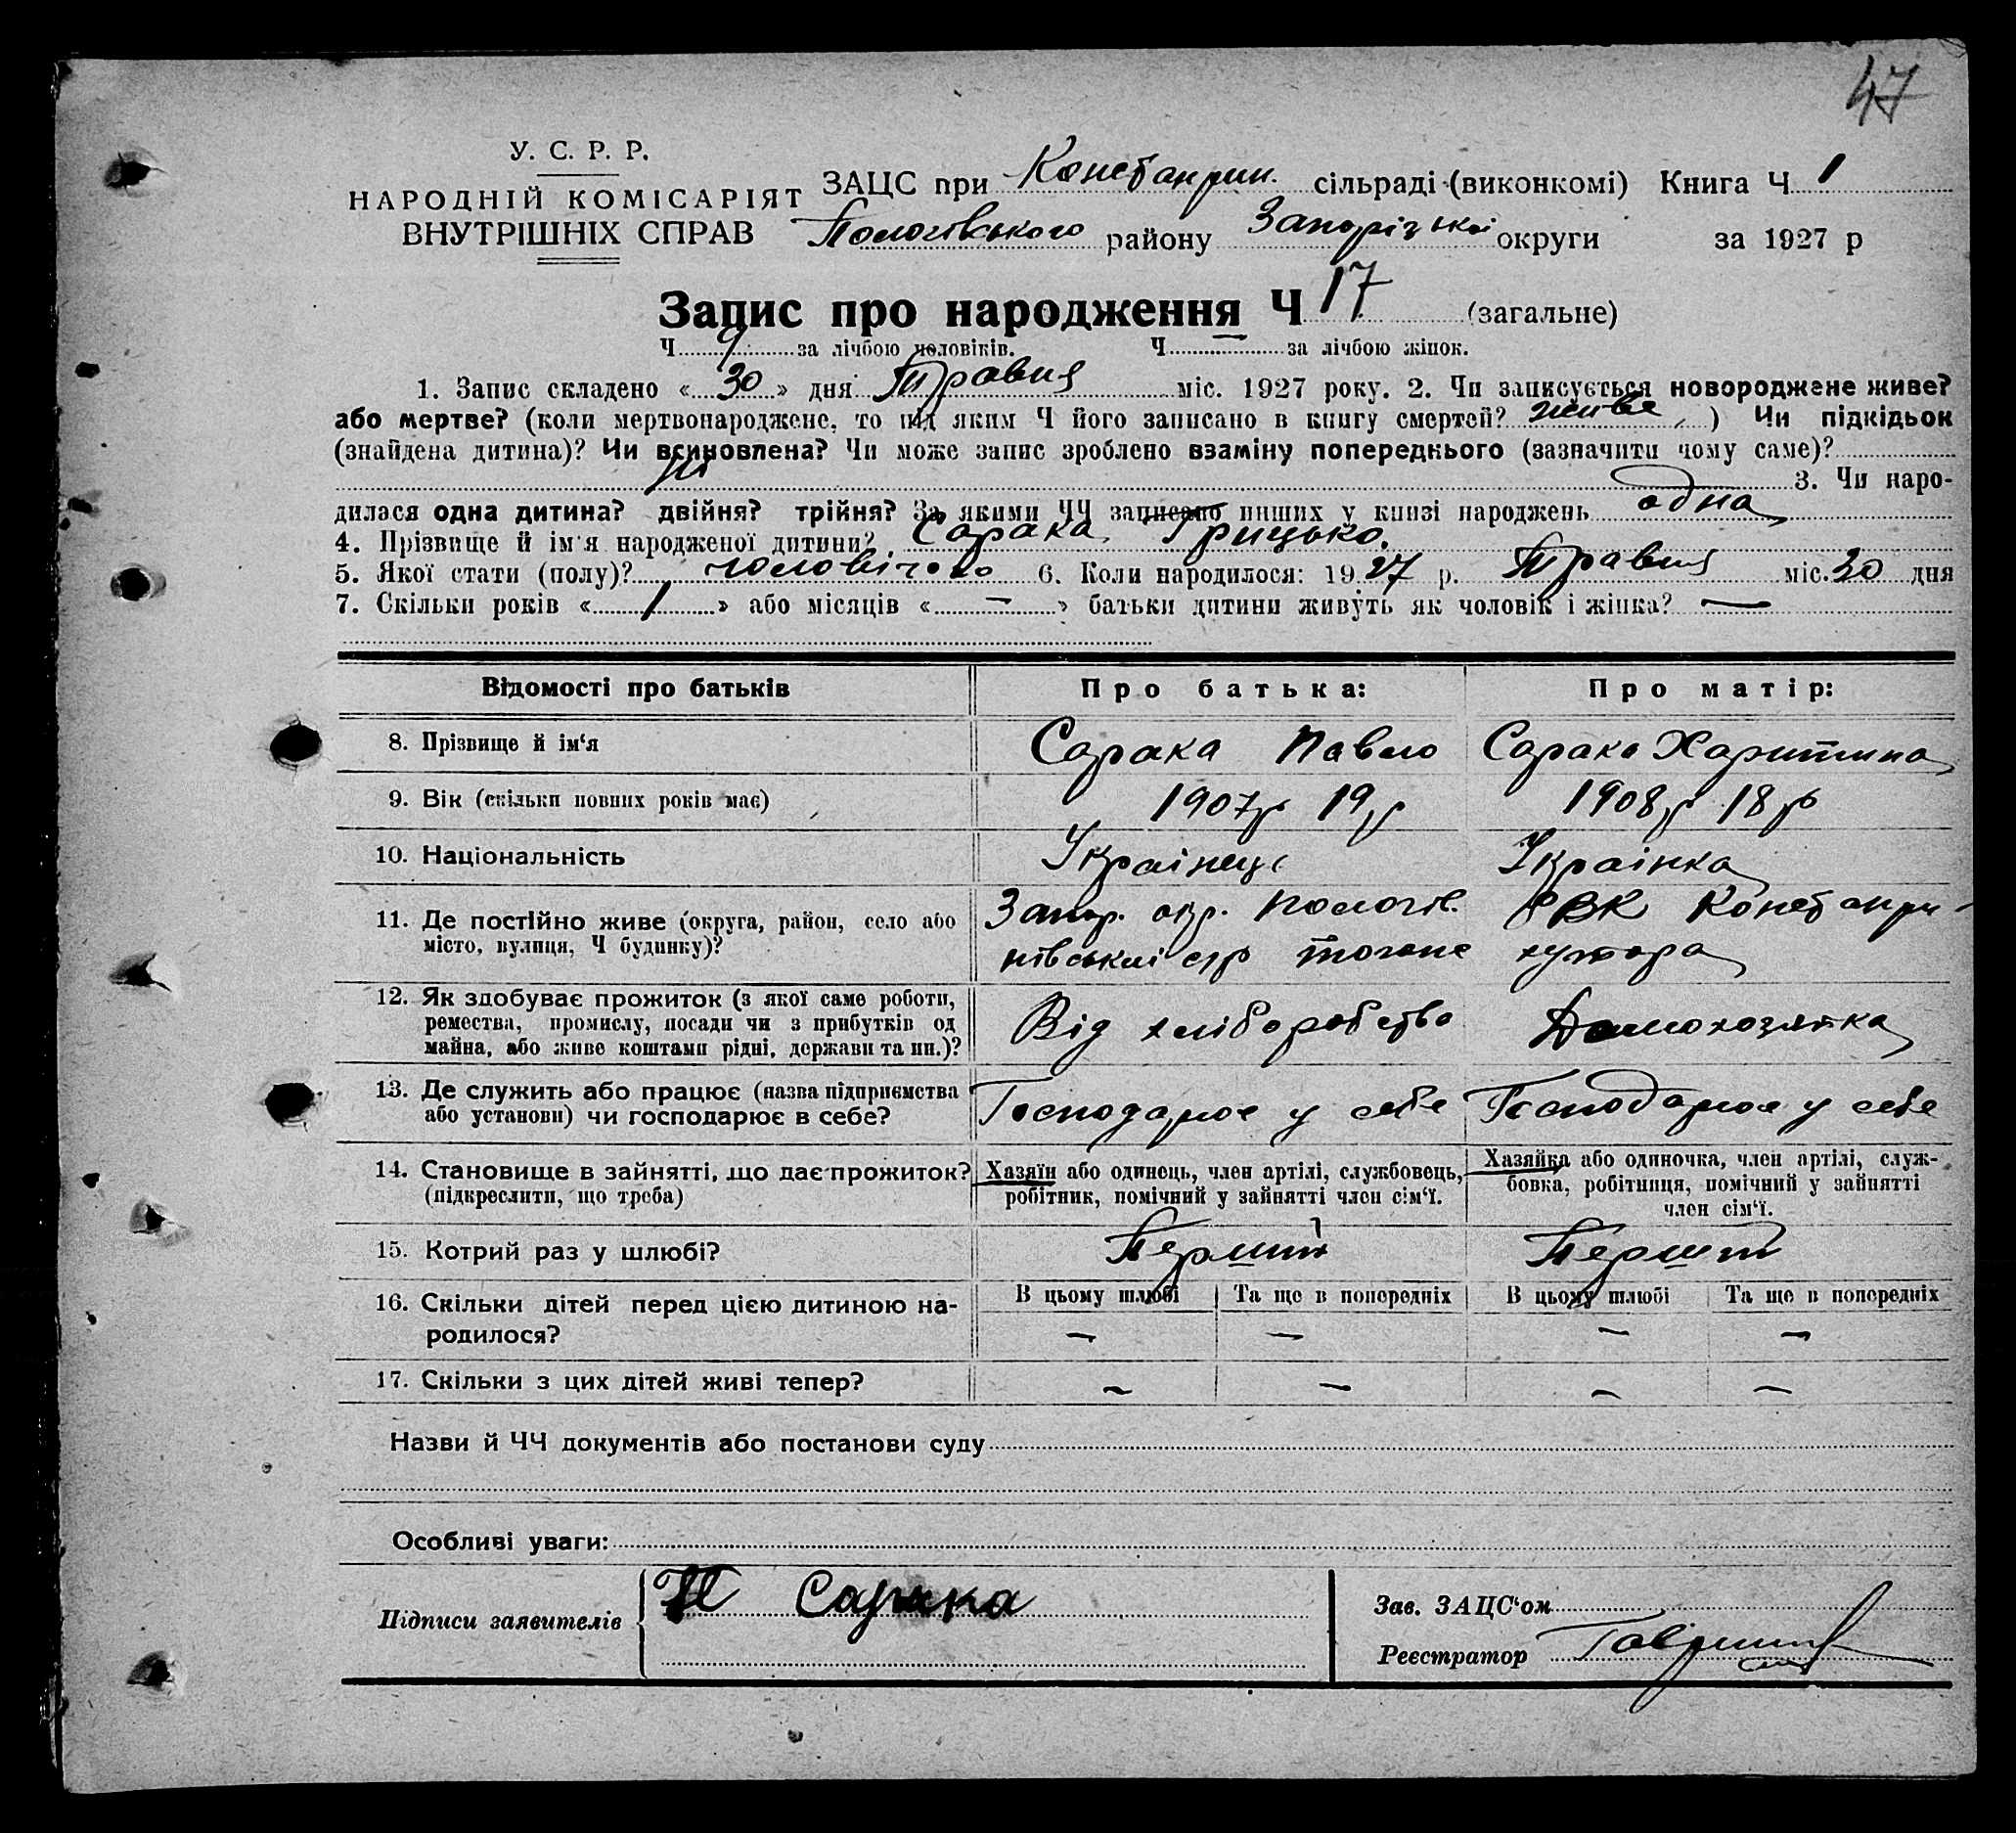 47
У. С. Р. Р.
НАРОДНІЙ КОМІСАРІЯТ
ВНУТРІШНІХ СПРАВ
ЗАЦС при Констанрин. сільраді (виконкомі) Книга Ч 1
Пологівського району Запорізької округи за 1927 р
Запис про народження Ч 17 (загальне)
Ч 9 за лічбою чоловіків. Ч — за лічбою жінок.
1. Запис складено « 30 » дня Травня міс. 1927 року. 2. Чи записується новороджене живе?
або мертве? (коли мертвонароджене, то під яким Ч його записано в книгу смертей? живе ) Чи підкідьок
(знайдена дитина)? Чи всиновлена? Чи може запис зроблено взаміну попереднього (зазначити чому саме)?
ні 3. Чи наро-
дилася одна дитина? двійня? трійня? За якими ЧЧ записано инших у книзі народжень одна
4. Прізвище й ім'я народженої дитини? Сарака Грицько.
5. Якої стати (полу)? чоловічого 6. Коли народилося: 1927 р. Травня міс. 30 дня
7. Скільки років « 1 » або місяців « — » батьки дитини живуть як чоловік і жінка? —
Відомості про батьків Про батька: Про матір:
8. Прізвище й ім‘я Сарака Павло Сарака Харитина
9. Вік (скільки повних років має) 1907р 19р 1908р 18р
10. Національність Українець Українка
11. Де постійно живе (округа, район, село або Запор. окр. Пологів. РВК Констанри-
місто, вулиця, Ч будинку)? нівської с/р хутора
12. Як здобуває прожиток (з якої саме роботи,
ремества, промислу, посади чи з прибутків од Від хліборобства Домохозяйка
майна, або живе коштами рідні, держави та ин.)?
13. Де служить або працює (назва підприємства Господарює у себе Господарює у себе
або установи) чи господарює в себе?
14. Становище в зайнятті, що дає прожиток? Хазяїн або одинець, член артілі, службовець, Хазяйка або одиночка, член артілі, служ-
(підкреслити, що треба) робітник, помічний у зайнятті член сім‘ї. бовка, робітниця, помічний у зайнятті
член сім‘ї.
15. Котрий раз у шлюбі? Перший Перший
16. Скільки дітей перед цією дитиною на- В цьому шлюбі Та ще в попередніх В цьому шлюбі Та ще в попередніх
родилося? — — — —
17. Скільки з цих дітей живі тепер? — — — —
Назви й ЧЧ документів або постанови суду
Особливі уваги:
Підписи заявителів П Сарака
Зав. ЗАЦС‘ом
Реєстратор